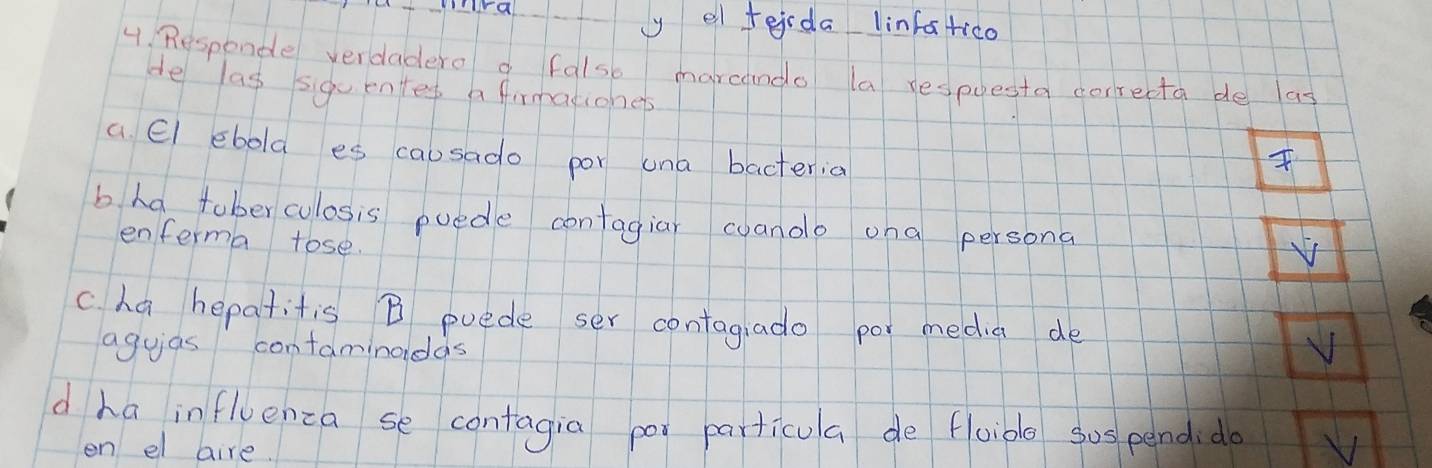 y el tejido linfatico
4. Responde verdadero o falso marcando la respuesta correcta de las
de las siguentes afirmaciones
a. El ebola es causado por una bacteria F
b. La tuberculosis puede contagiar cuando una persona
enferma tose. V
c. La hepatitis B puede ser contagiado por media de
agujas contaminadas V
d La influenza se contagia por particula de fluido suspendido
en el aire. V